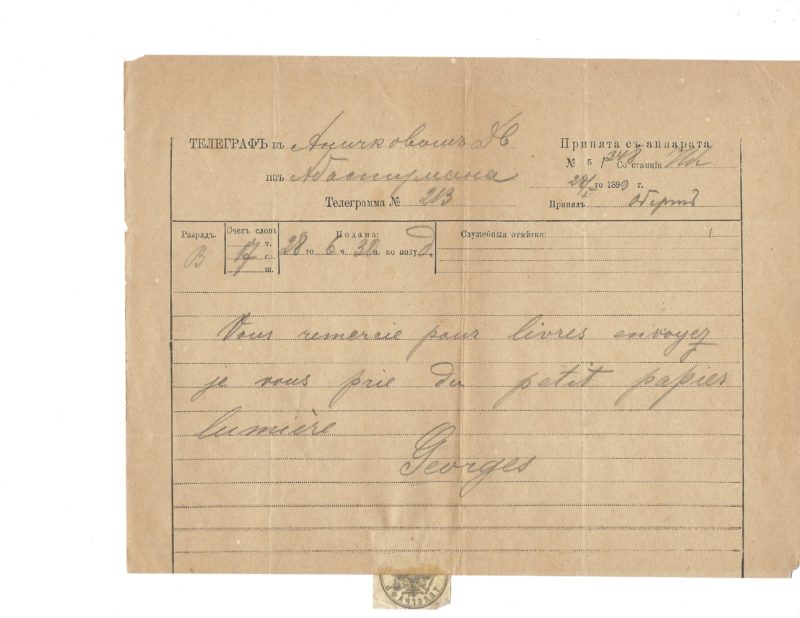 ТЕЛЕГРАФЪ въ Аничковомъ Дв
изъ Абастумана
Телеграмма № 213
Принята съ аппарата
№ 5 1348 Со станціи
28 го 189 г.
Принялъ
Разрядъ. В
Счетъ словъ
ч.
17 с.
ш.
Подана:
28 го 6 ч. 38 м. по полу д.
Служебныя отмѣтки:
Vous remercie pour livres envoyez
je vous prie du petit papier
lumière
Georges